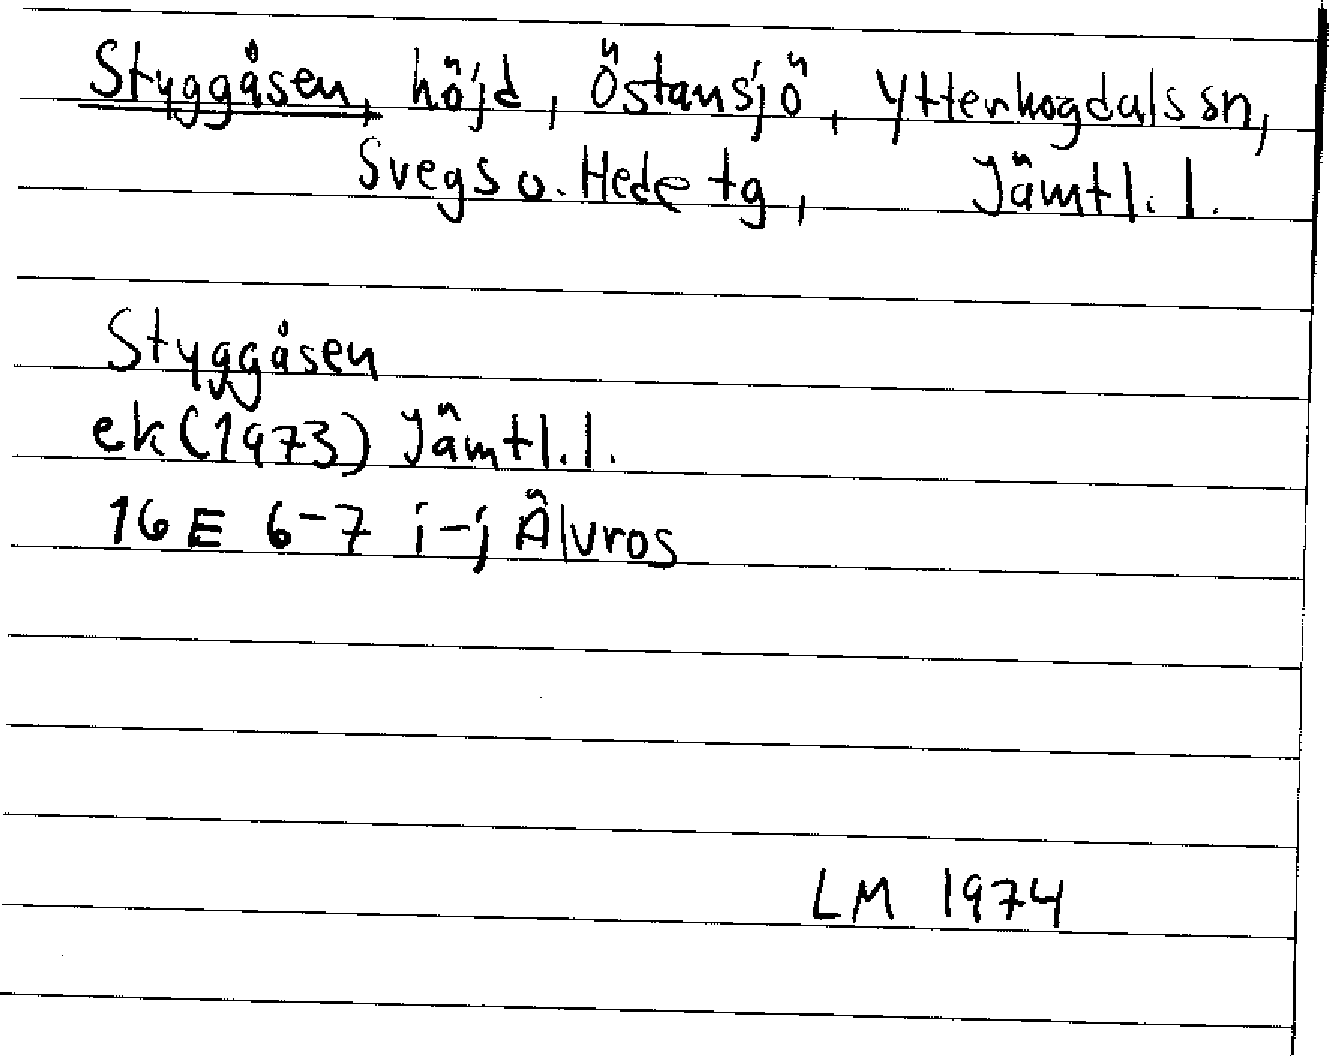 Styggåsen, höjd, Östansjö, Ytterhogdals sn,
Svegs o. Hede tg, Jämtl. l.
Styggåsen
ek (1973) Jämtl. l.
16 E 6-7 i-j Älvros
LM 1974